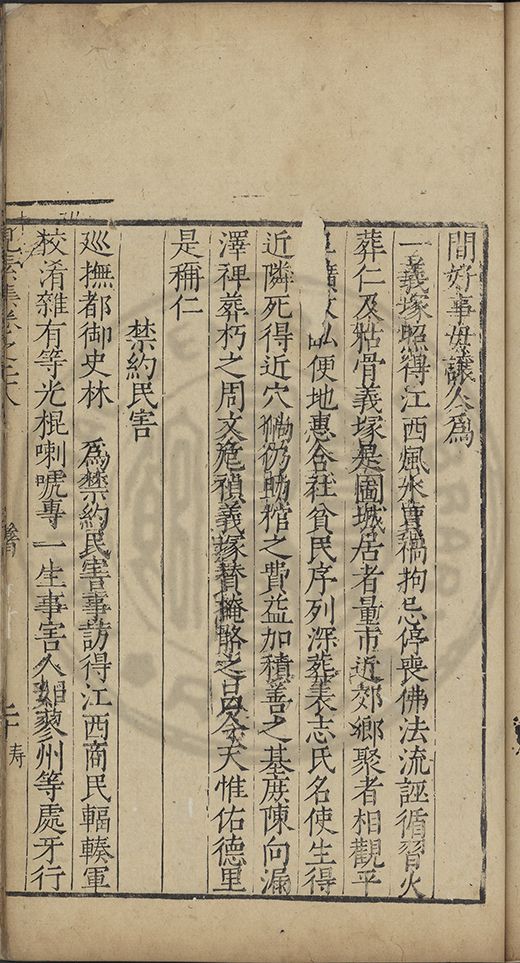 間好事毋讓人爲
一義塚照得江西風水賣禍拘忌停喪佛法流誣循習火
葬仁及枯骨義塚是圖城居者量市近郊鄉聚者相觀平
便地惠合社貧民序列深葬表志氏名使生得
近隣死得近穴仍助棺之費益加積善之基庶陳向漏
澤裡葬朽之周文 禎義塚賛掩骼之 令天惟佑德里
是稱仁
禁約民害
巡撫都御史林　爲禁約民害事訪得江西商民輻輳軍
校淆雜有等光棍喇唬專一生事害人如蓼州等處牙行
見素集卷之六
二十
寿